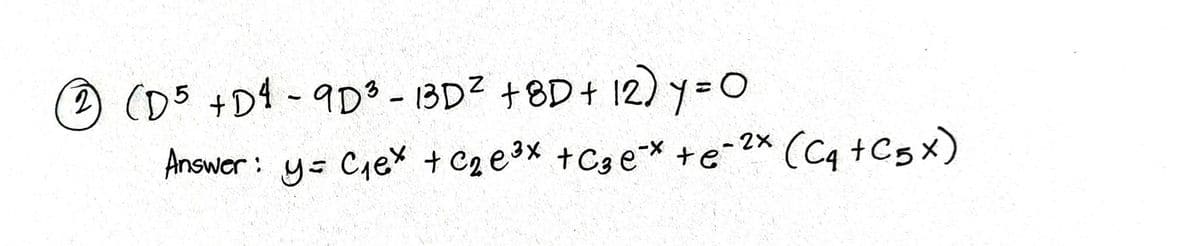 ② (D⁵ + D⁴ - 9D³ - 13D² + 8D + 12) y = 0
Answer: y = C₁eˣ + C₂e³ˣ + C₃e⁻ˣ + e⁻²ˣ (C₄ + C₅x)